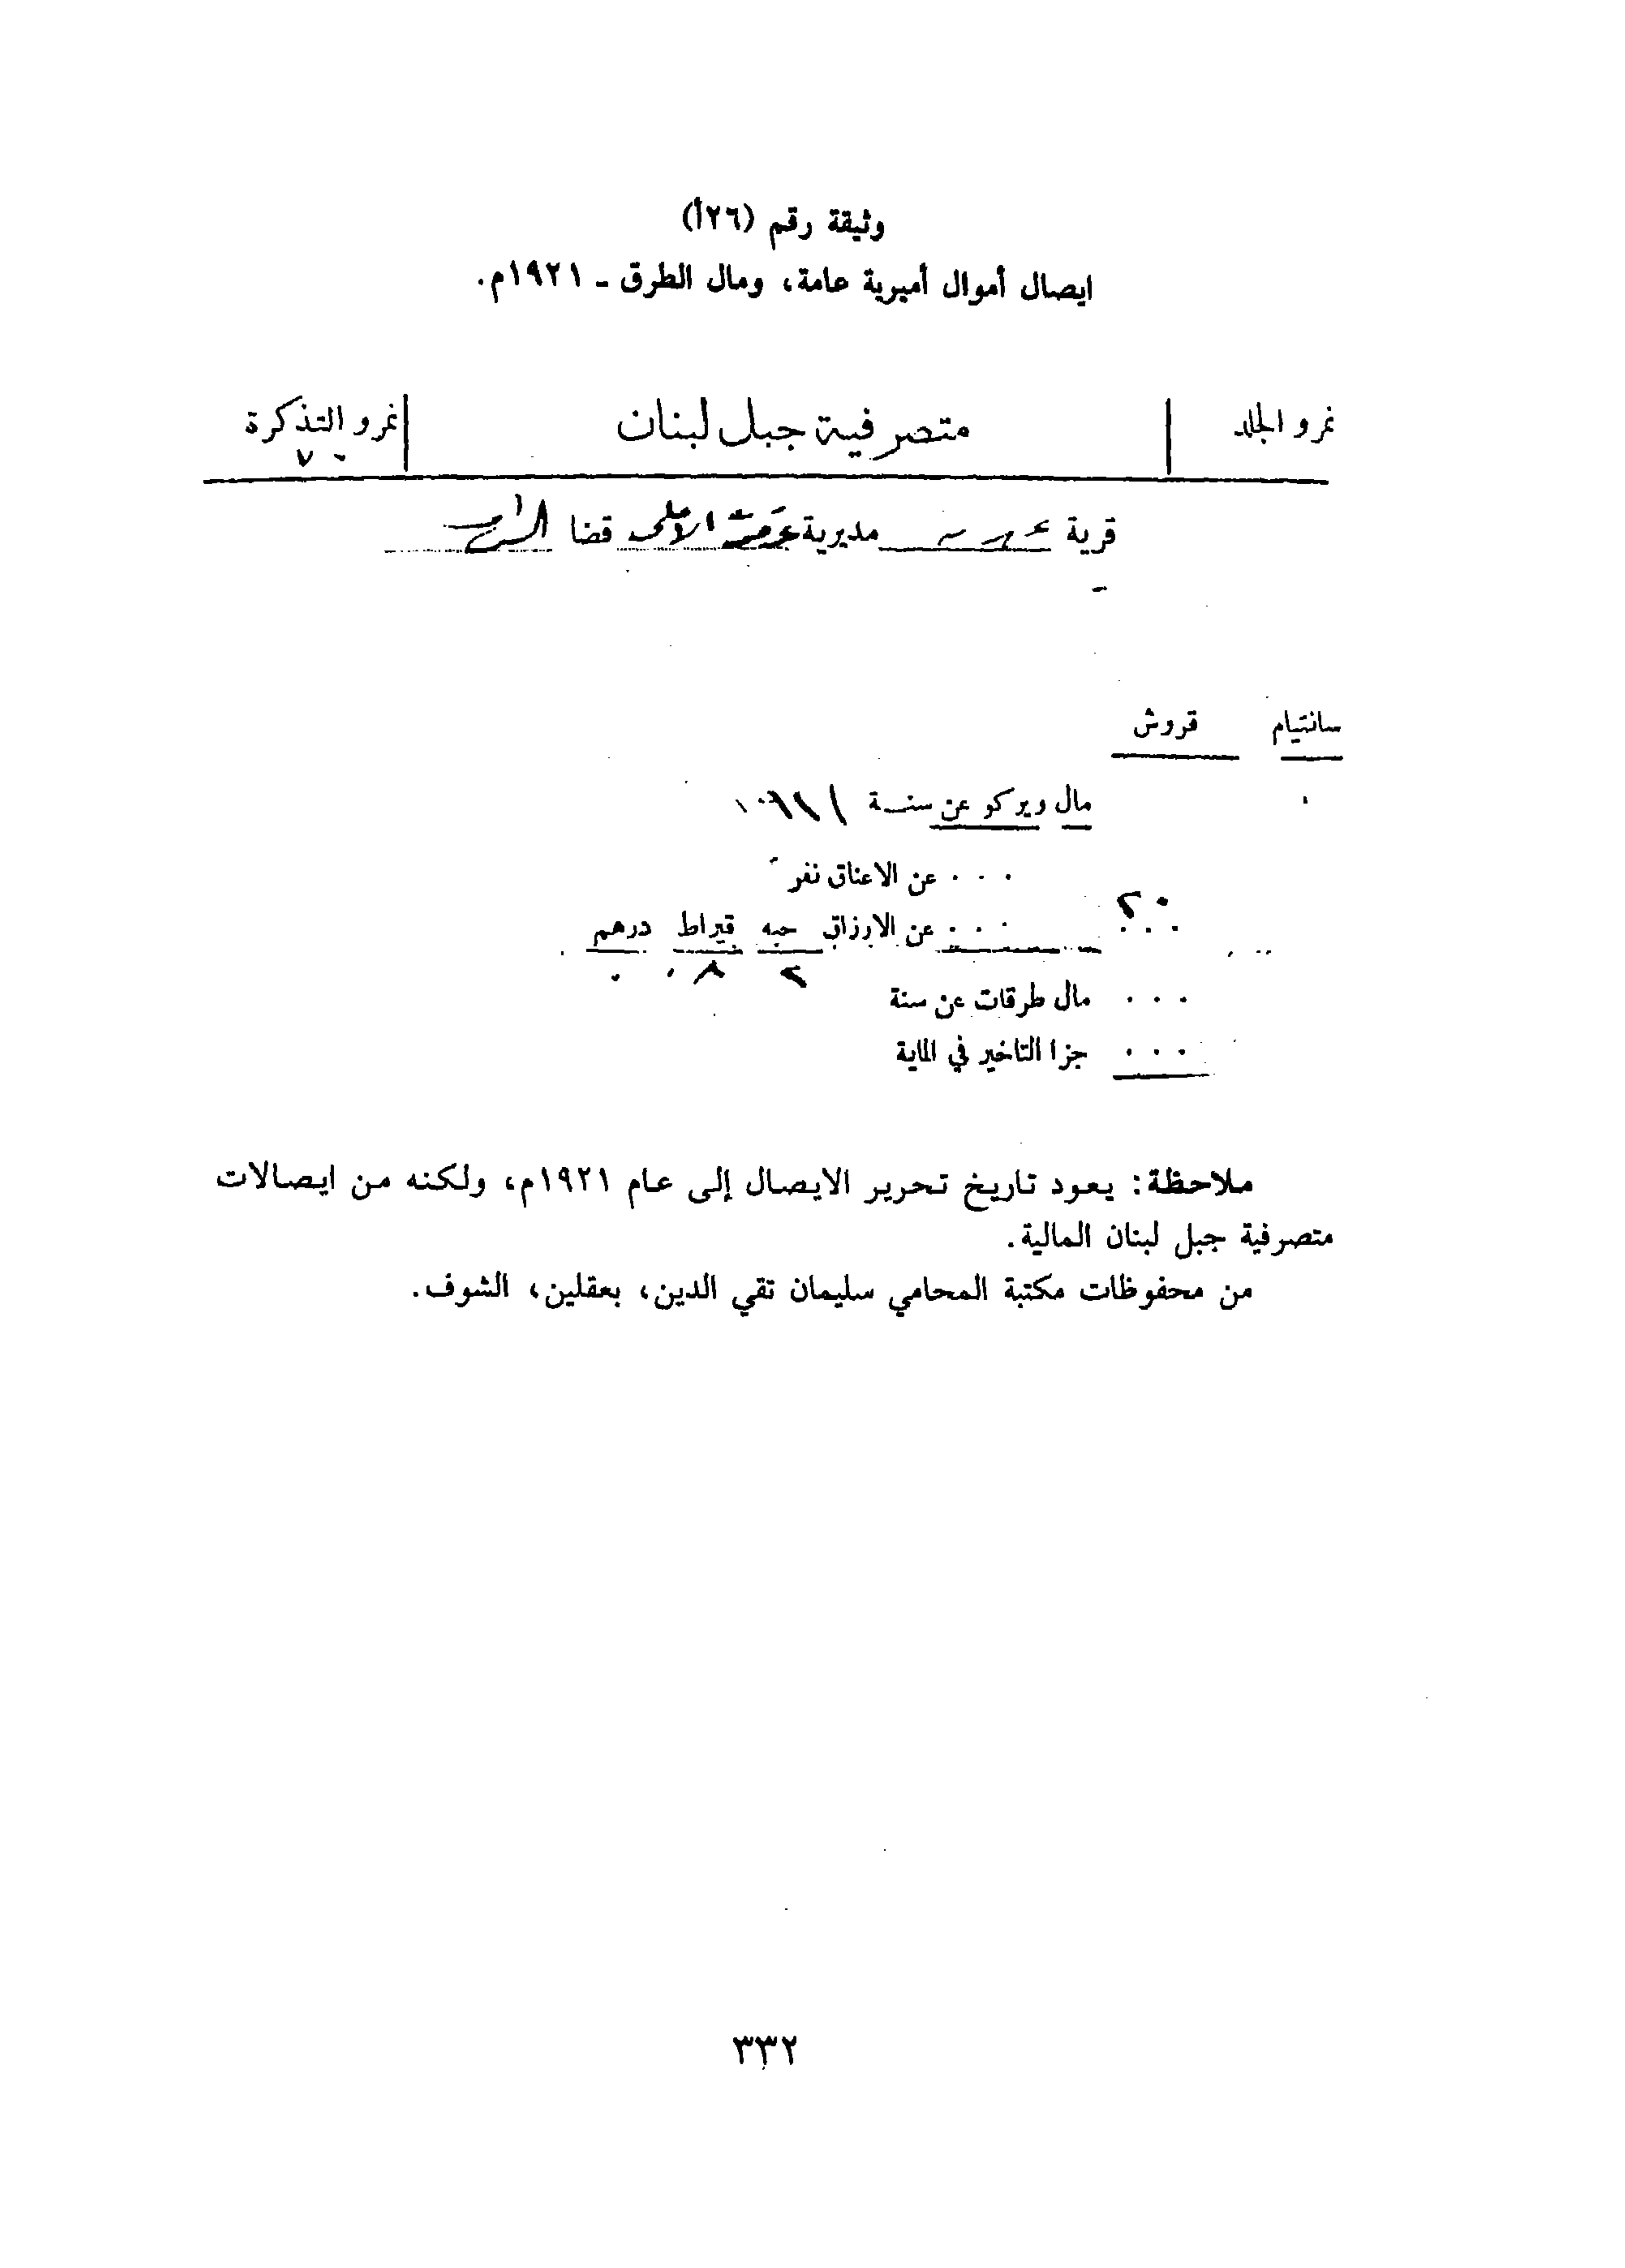 وثيقة رقم (٢٦أ)
ايصال أموال أميرية عامة، ومال الطرق ـ ١٩٢١م.
نمرو الجلد متصرفية جبل لبنان نمرو التذكرة
قرية مديرية قضا
سانتيام قروش
مال ويركو عن سنة
٠٠٠ عن الاعناق نفر
٢٠ ٠٠٠ عن الارزاق حبه قيراط درهم
٢ ٨ ٠
٠٠٠ مال طرقات عن سنة
٠٠٠ جزا التاخير في الماية
ملاحظة: يعود تاريخ تحرير الايصال إلى عام ١٩٢١م، ولكنه من ايصالات
متصرفية جبل لبنان المالية.
من محفوظات مكتبة المحامي سليمان تقي الدين، بعقلين، الشوف.
٣٣٢